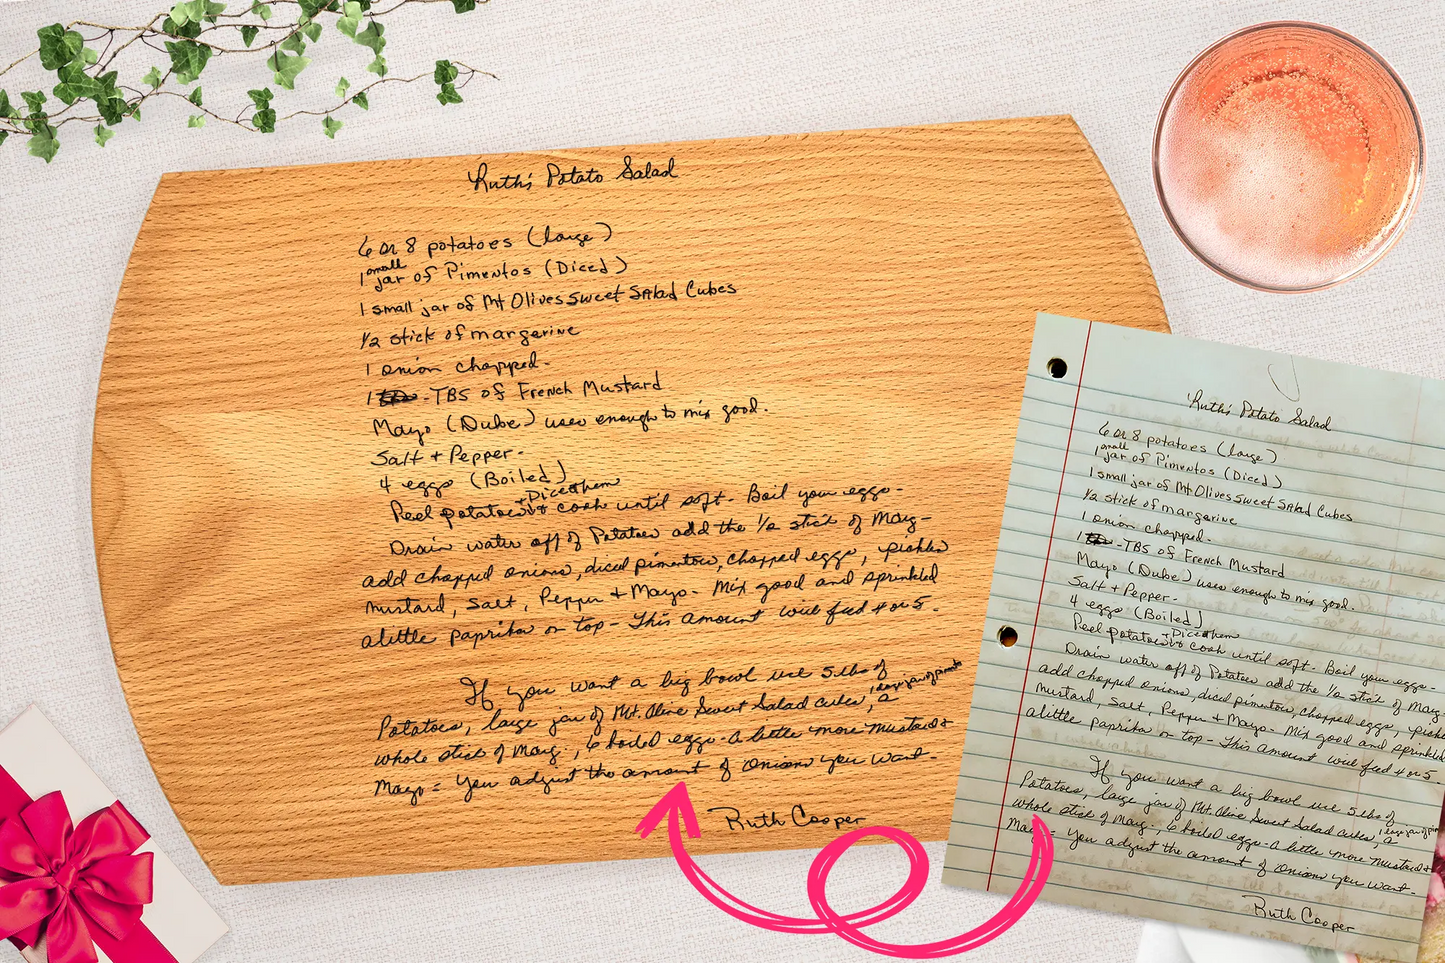 Ruth's Potato Salad
6 or 8 potatoes (large)
1 small jar of Pimentos (Diced)
1 small jar of Mt Olives Sweet Salad Cubes
1/2 stick of margerine
1 onion chopped-
1 -TBS of French Mustard
Mayo (Duke) uses enough to mix good.
Salt + Pepper-
4 eggs (Boiled)
Peel potatoes + Dice them cook until soft- Boil your eggs-
Drain water off of Potatoes add the 1/2 stick of Marg-
add chopped onions, diced pimentos, chopped eggs, pickles
mustard, Salt, Pepper + Mayo- Mix good and sprinkled
alittle paprika on top- This Amount will feed 4 or 5-
If you want a big bowl use 5 lbs of
Potatoes, large jar of Mt. Olive Sweet Salad cubes, 1 large jar of pimento, a
whole stick of Marg-, 6 boiled eggs- a little more Mustard +
Mayo = You adjust the amount of onions you want-
Ruth Cooper
Ruth's Potato Salad
6 or 8 potatoes (large)
1 small jar of Pimentos (Diced)
1 small jar of Mt Olives Sweet Salad Cubes
1/2 stick of margerine
1 onion chopped-
1 -TBS of French Mustard
Mayo (Duke) uses enough to mix good.
Salt + Pepper-
4 eggs (Boiled)
Peel potatoes + Dice them cook until soft- Boil your eggs-
Drain water off of Potatoes add the 1/2 stick of Marg
add chopped onions, diced pimentos, chopped eggs,
mustard, Salt, Pepper + Mayo- Mix good and
alittle paprika on top- This Amount will feed 4 or 5-
If you want a big bowl use 5 lbs of
Potatoes, large jar of Mt. Olive Sweet Salad cubes, 1 large jar of a
whole stick of Marg-, 6 boiled eggs- a little more Mustard +
You adjust the amount of onions you want-
Ruth Cooper